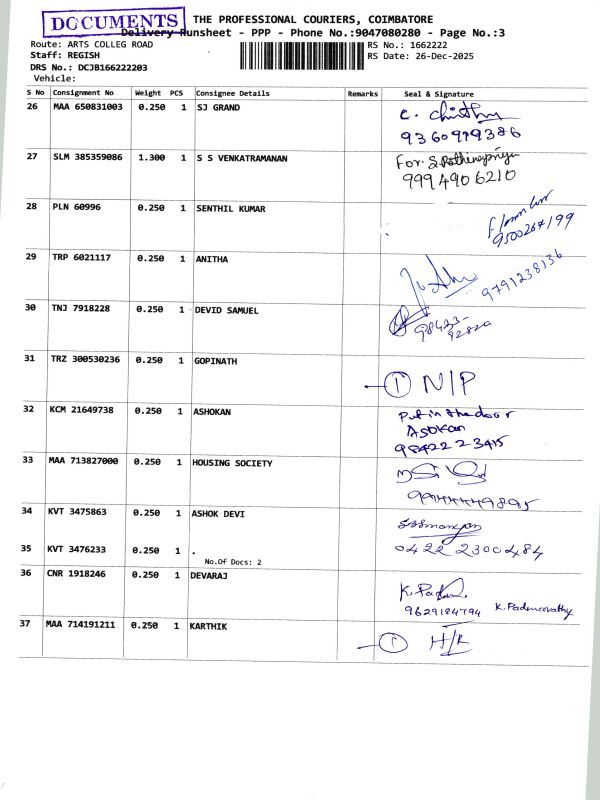 DOCUMENTS
THE PROFESSIONAL COURIERS, COIMBATORE
Delivery Runsheet - PPP - Phone No.:9047080280 - Page No.:3
Route: ARTS COLLEG ROAD RS No.: 1662222
Staff: REGISH RS Date: 26-Dec-2025
DRS No.: DCJB166222203
Vehicle:
S No Consignment No Weight PCS Consignee Details Remarks Seal & Signature
26 MAA 650831003 0.250 1 SJ GRAND
9360979386
27 SLM 385359086 1.300 1 S S VENKATRAMANAN For.
9994906210
28 PLN 60996 0.250 1 SENTHIL KUMAR
9500267199
29 TRP 6021117 0.250 1 ANITHA
9791238136
30 TNJ 7918228 0.250 1 DEVID SAMUEL
98423-
92820
31 TRZ 300530236 0.250 1 GOPINATH
1 N/P
32 KCM 21649738 0.250 1 ASHOKAN Put in the door
ASOKan
98422 23415
33 MAA 713827000 0.250 1 HOUSING SOCIETY
34 KVT 3475863 0.250 1 ASHOK DEVI
35 KVT 3476233 0.250 1 . 0422 2300484
No.Of Docs: 2
36 CNR 1918246 0.250 1 DEVARAJ
9629184794 K. Padmavathy
37 MAA 714191211 0.250 1 KARTHIK 1 H/K